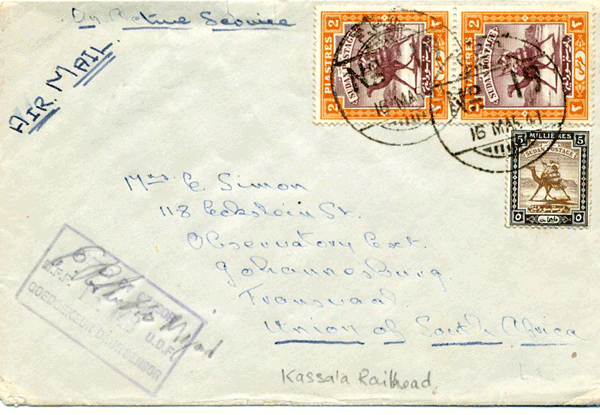 On Active Service
AIR MAIL
2 2
SUDAN POSTAGE
PIASTRES
2 2
SUDAN POSTAGE
PIASTRES
16 MAR 41
16 MAR 41
5 MILLIEMES 5
SUDAN POSTAGE
Mrs E. Simon
118 Eckstein St.
Observatory Ext.
Johannesburg.
Transvaal
Union of South Africa
U.D.F.
Kassala Railhead